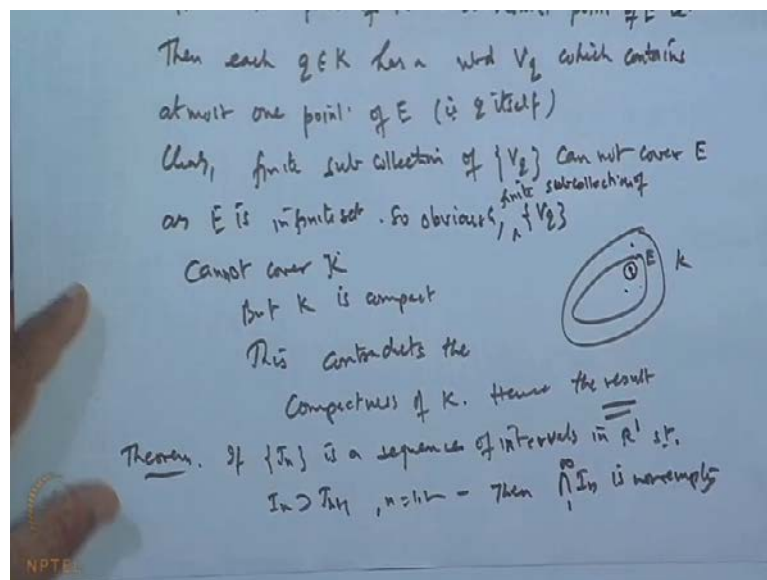 point of E is
Then each q ∈ K has a nbd V_q which contains
atmost one point of E (ie q itself)
Clearly, finite sub collection of {V_q} can not cover E
as E is infinite set. So obviously, ∧ {V_q}
finite subcollection of
cannot cover K
But K is compact
This contradicts the
Compactness of K. Hence the result
E K
Theorem. If {In} is a sequence of intervals in R¹ st.
In ⊃ In+1, n=1,2 — Then ∞∩1 In is nonempty
NPTEL